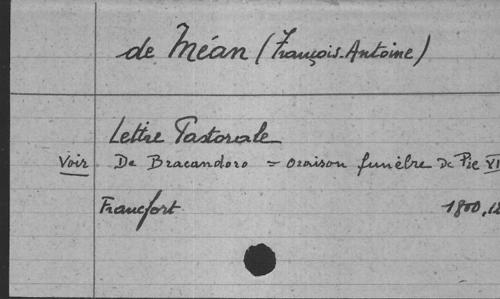 de Méan (François-Antoine)
Lettre Pastorale
Voir De Bracandoro = oraison funèbre de Pie VI
Francfort 1800,